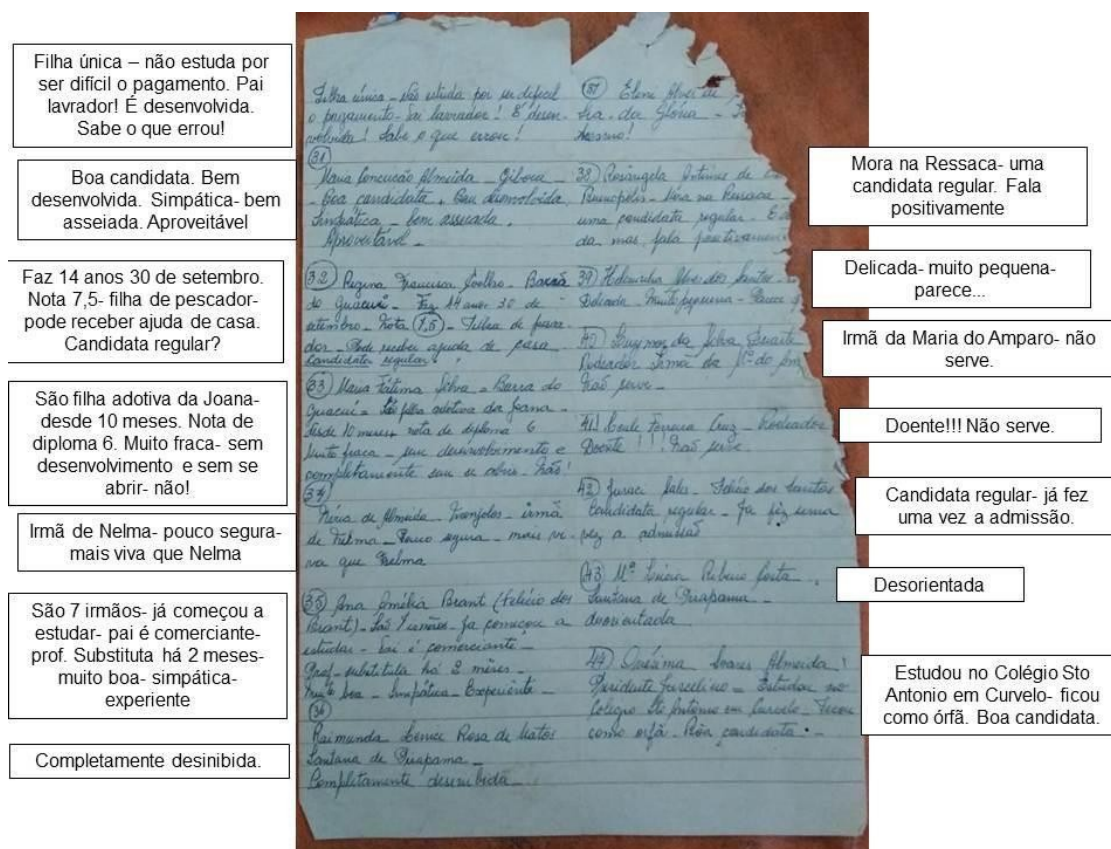 Filha única – não estuda por
ser difícil o pagamento. Pai
lavrador! É desenvolvida.
Sabe o que errou!
Boa candidata. Bem
desenvolvida. Simpática- bem
asseiada. Aproveitável
Faz 14 anos 30 de setembro.
Nota 7,5- filha de pescador-
pode receber ajuda de casa.
Candidata regular?
São filha adotiva da Joana-
desde 10 meses. Nota de
diploma 6. Muito fraca- sem
desenvolvimento e sem se
abrir- não!
Irmã de Nelma- pouco segura-
mais viva que Nelma
São 7 irmãos- já começou a
estudar- pai é comerciante-
prof. Substituta há 2 meses-
muito boa- simpática-
experiente
Completamente desinibida.
Filha única - não estuda por ser difícil
o pagamento - Pai lavrador! É desen-
volvida! Sabe o que errou!
31
Maria Conceição Almeida -
- Boa candidata. Bem desenvolvida
Simpática - bem asseiada.
Aproveitável -
32 Regina Francisca Coelho - Barra
do Guacuí - Faz 14 anos 30 de
setembro - Nota 7,5 - Filha de pesca-
dor - Pode receber ajuda de casa
Candidata regular
33 Maria Fátima Silva - Barra do
Guacuí - São filha adotiva da Joana -
desde 10 meses nota de diploma 6
Muito fraca - sem desenvolvimento e
completamente sem se abrir - Não!
34
de Almeida - irmã
de Nelma - Pouco segura - mais vi-
va que Nelma
35 Ana Amélia Brant (Felício dos
Brant) - São 7 irmãos - Já começou a
estudar - Pai é comerciante -
Prof - substituta há 2 mêses -
muito boa - Simpática - Experiente -
36
Raimunda Rosa de Matos
Santana de Pirapama -
Completamente desinibida -
37 da Glória
38 Rosangela Antunes de
- Mora na Ressaca -
uma candidata regular -
da mas fala positivamen
39 Alves dos Santos -
Delicada - Muito pequena - Parece
40 da Silva Duarte
Rodeador Irmã da Mª do Am
Não serve -
41 Ferreira Cruz - Rodeador
Doente!!! Não serve
42 Juraci Sales - Felício dos Santos
Candidata regular - Já fez uma
vez a admissão
43 Mª Ribeiro Costa
Santana de Pirapama -
desorientada
44 Soares Almeida
Presidente Juscelino - Estudou no
Colégio Sto Antonio em Curvelo - Ficou
como orfã - Bôa candidata -
Mora na Ressaca- uma
candidata regular. Fala
positivamente
Delicada- muito pequena-
parece...
Irmã da Maria do Amparo- não
serve.
Doente!!! Não serve.
Candidata regular- já fez
uma vez a admissão.
Desorientada
Estudou no Colégio Sto
Antonio em Curvelo- ficou
como órfã. Boa candidata.